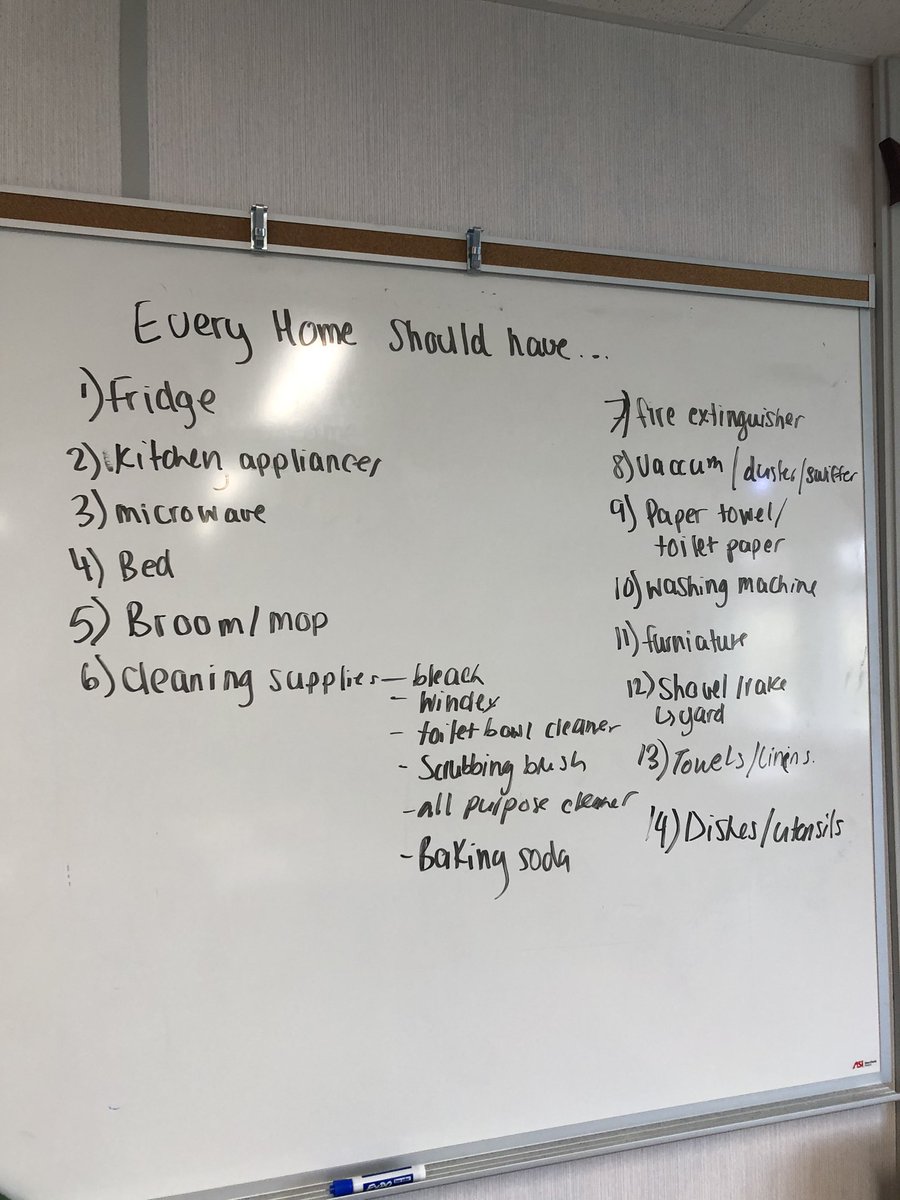 Every Home Should have...
1) Fridge
2) Kitchen appliances
3) microwave
4) Bed
5) Broom/mop
6) Cleaning supplies – bleach
- Windex
- toilet bowl cleaner
- Scrubbing brush
- all purpose cleaner
- Baking soda
7) fire extinguisher
8) Vaccum/duster/swiffer
9) Paper towel/
toilet paper
10) washing machine
11) furniature
12) Shovel/rake
↳ yard
13) Towels/linens.
14) Dishes/utensils
ASI